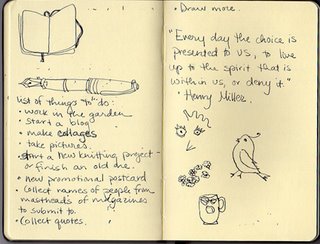 list of things "to" do:
• work in the garden
• start a blog
• make collages
• take pictures.
• start a new knitting project -
or finish an old one.
• new promotional postcard
• Collect names of people from
mastheads of magazines
to submit to.
• Collect quotes.
• Draw more.
"Every day the choice is
presented to us, to live
up to the spirit that is
within us, or deny it."
Henry Miller.